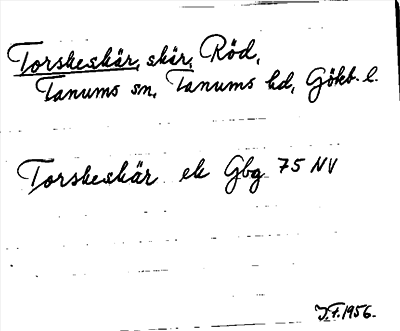 Torskeskär, skär, Röd,
Tanums sn, Tanums hd, Gökb. l.
Torskeskär ek Gbg 75 NV
J.F. 1956.